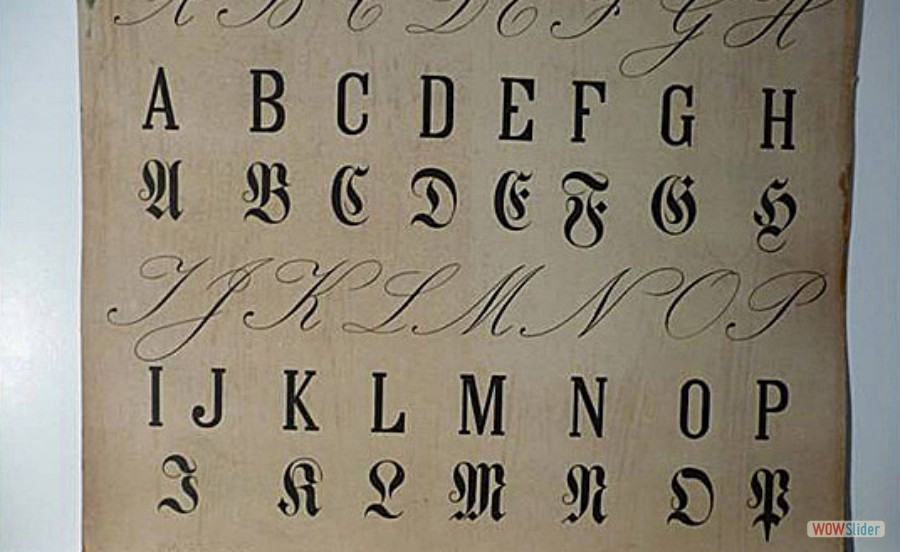 A B C D E F G H
A B C D E F G H
A B C D E F G H
I J K L M N O P
I J K L M N O P
I K L M N O P
WOWSlider